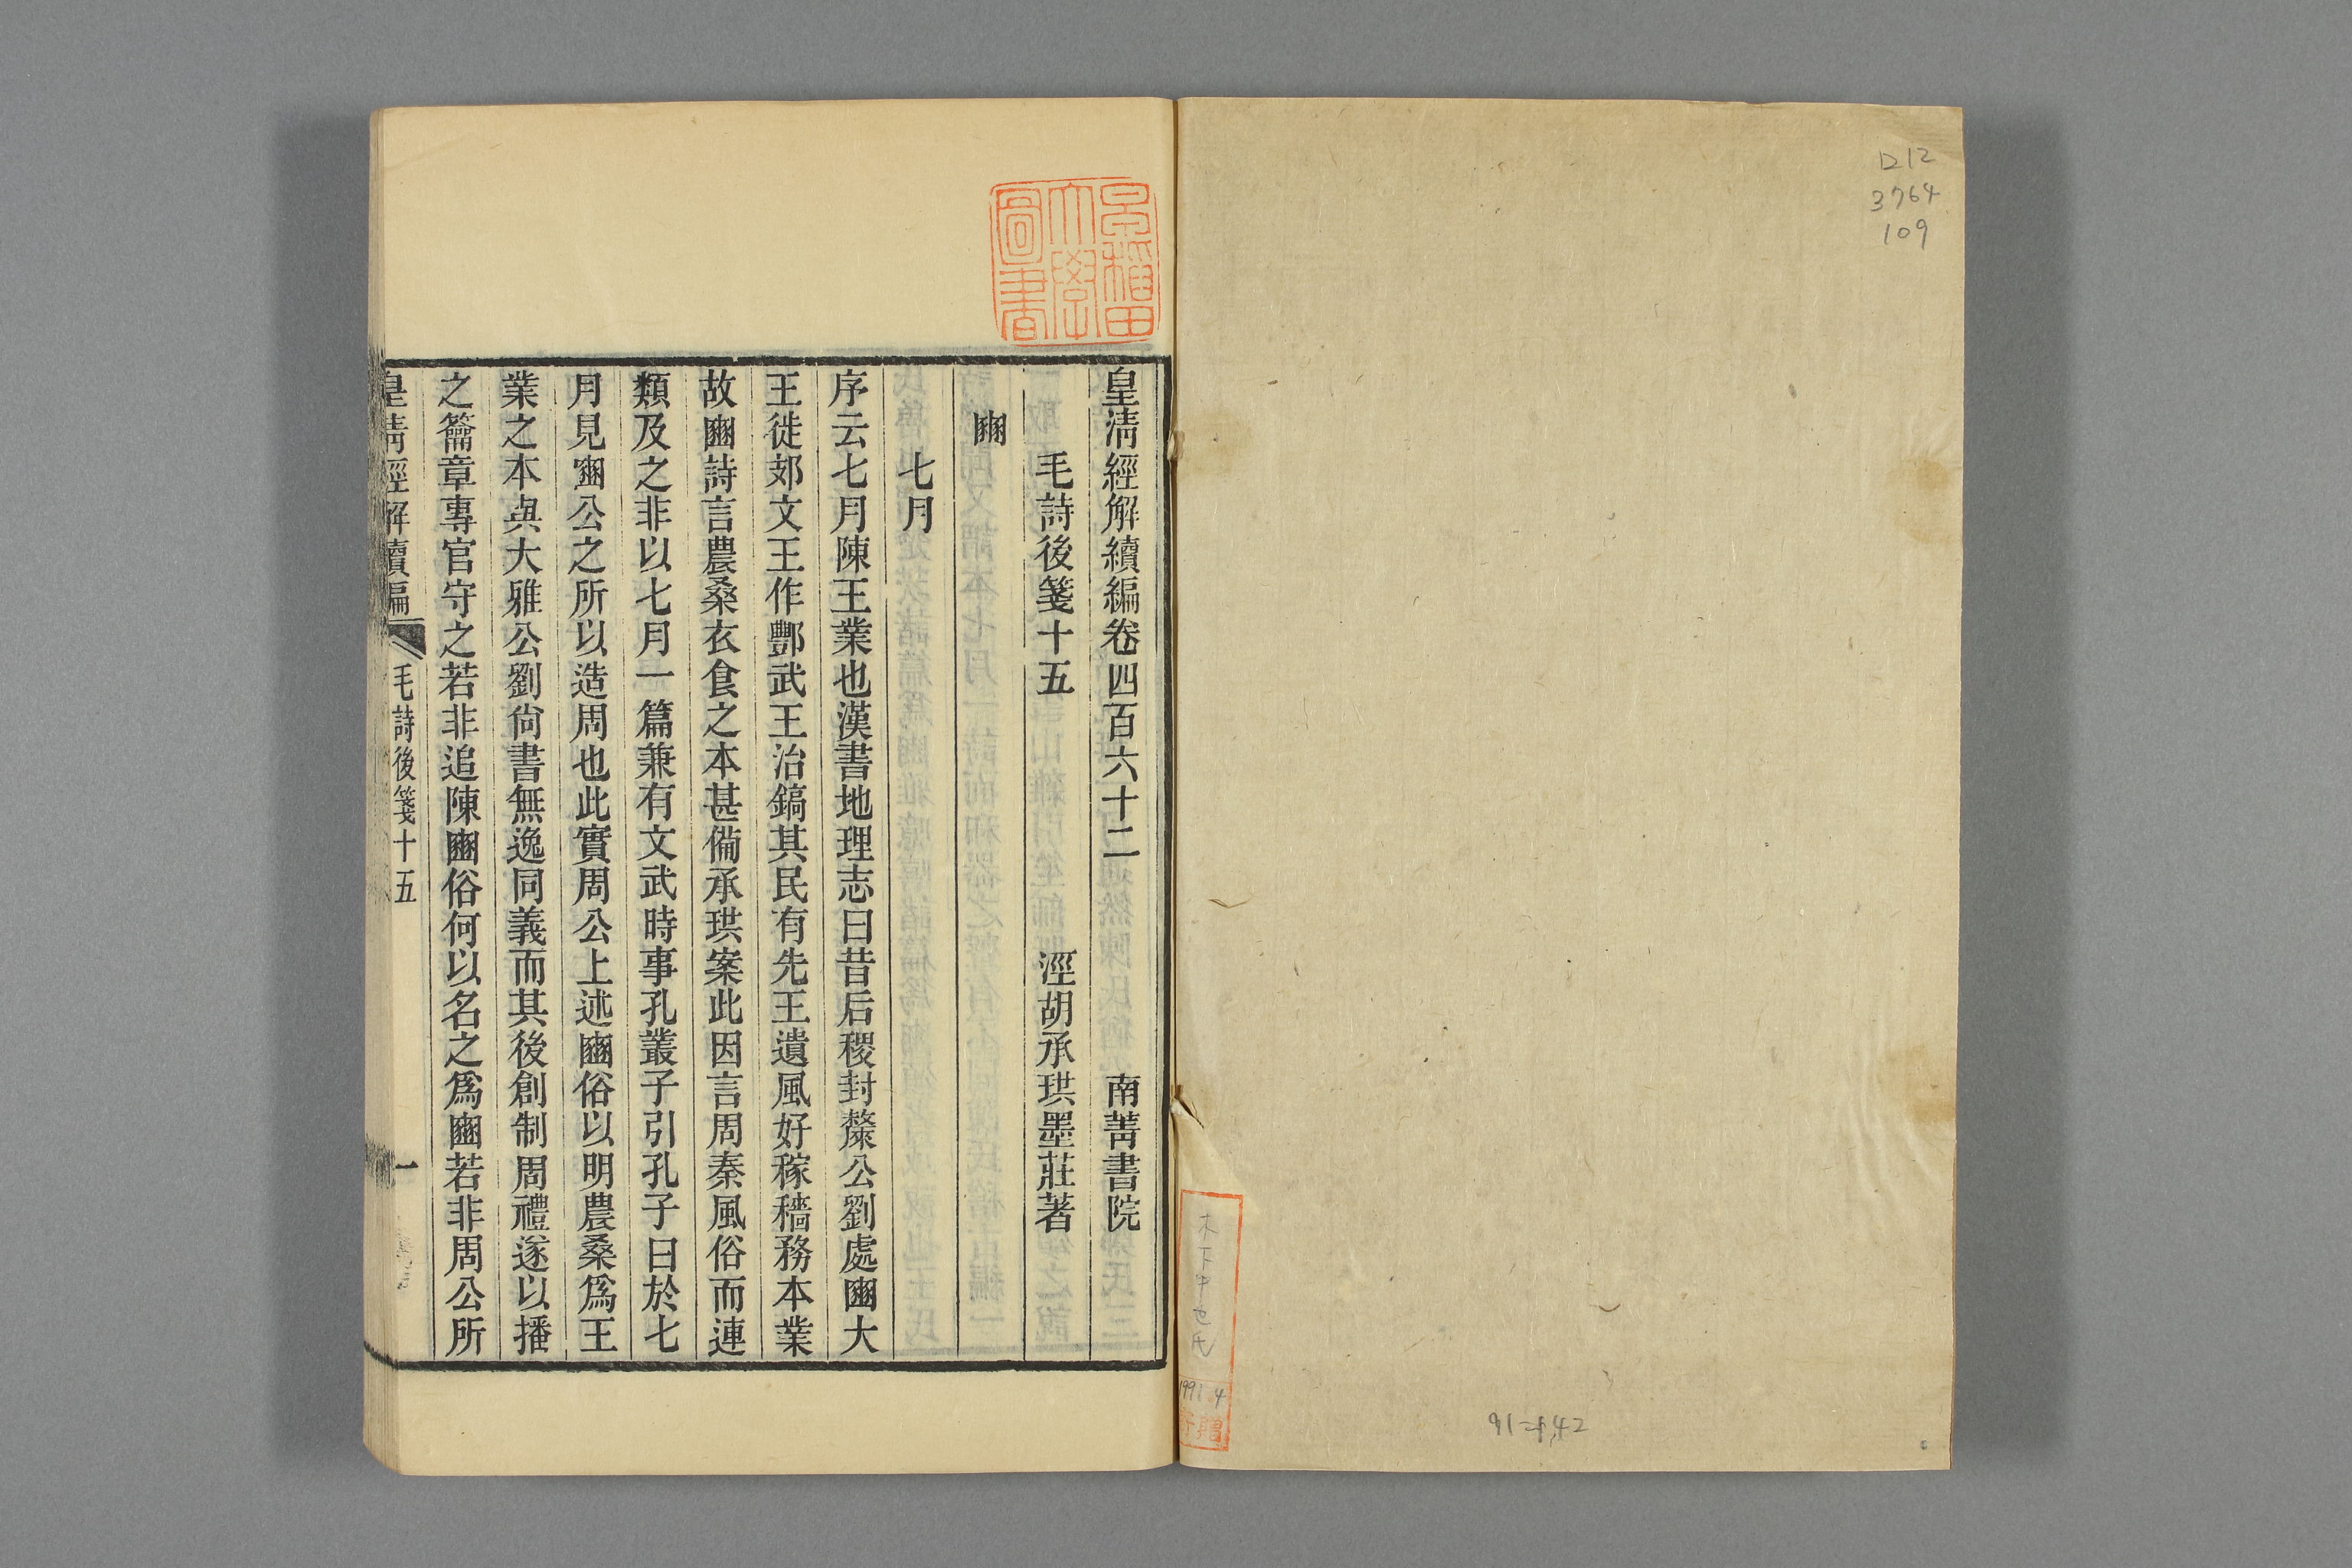 皇清經解續編卷四百六十二 南菁書院
毛詩後箋十五 涇胡承珙墨莊著
豳
七月
序云七月陳王業也漢書地理志曰昔后稷封斄公劉處豳大
王徙郊文王作酆武王治鎬其民有先王遺風好稼穡務本業
故豳詩言農桑衣食之本甚備承珙案此因言周秦風俗而連
類及之非以七月一篇兼有文武時事孔叢子引孔子曰於七
月見豳公之所以造周也此實周公上述豳俗以明農桑爲王
業之本與大雅公劉尙書無逸同義而其後創制周禮遂以播
之籥章專官守之若非追陳豳俗何以名之爲豳若非周公所
皇清經解續編 毛詩後箋十五 一
早稻田
大學
圖書
D12
3764
109
1991.4